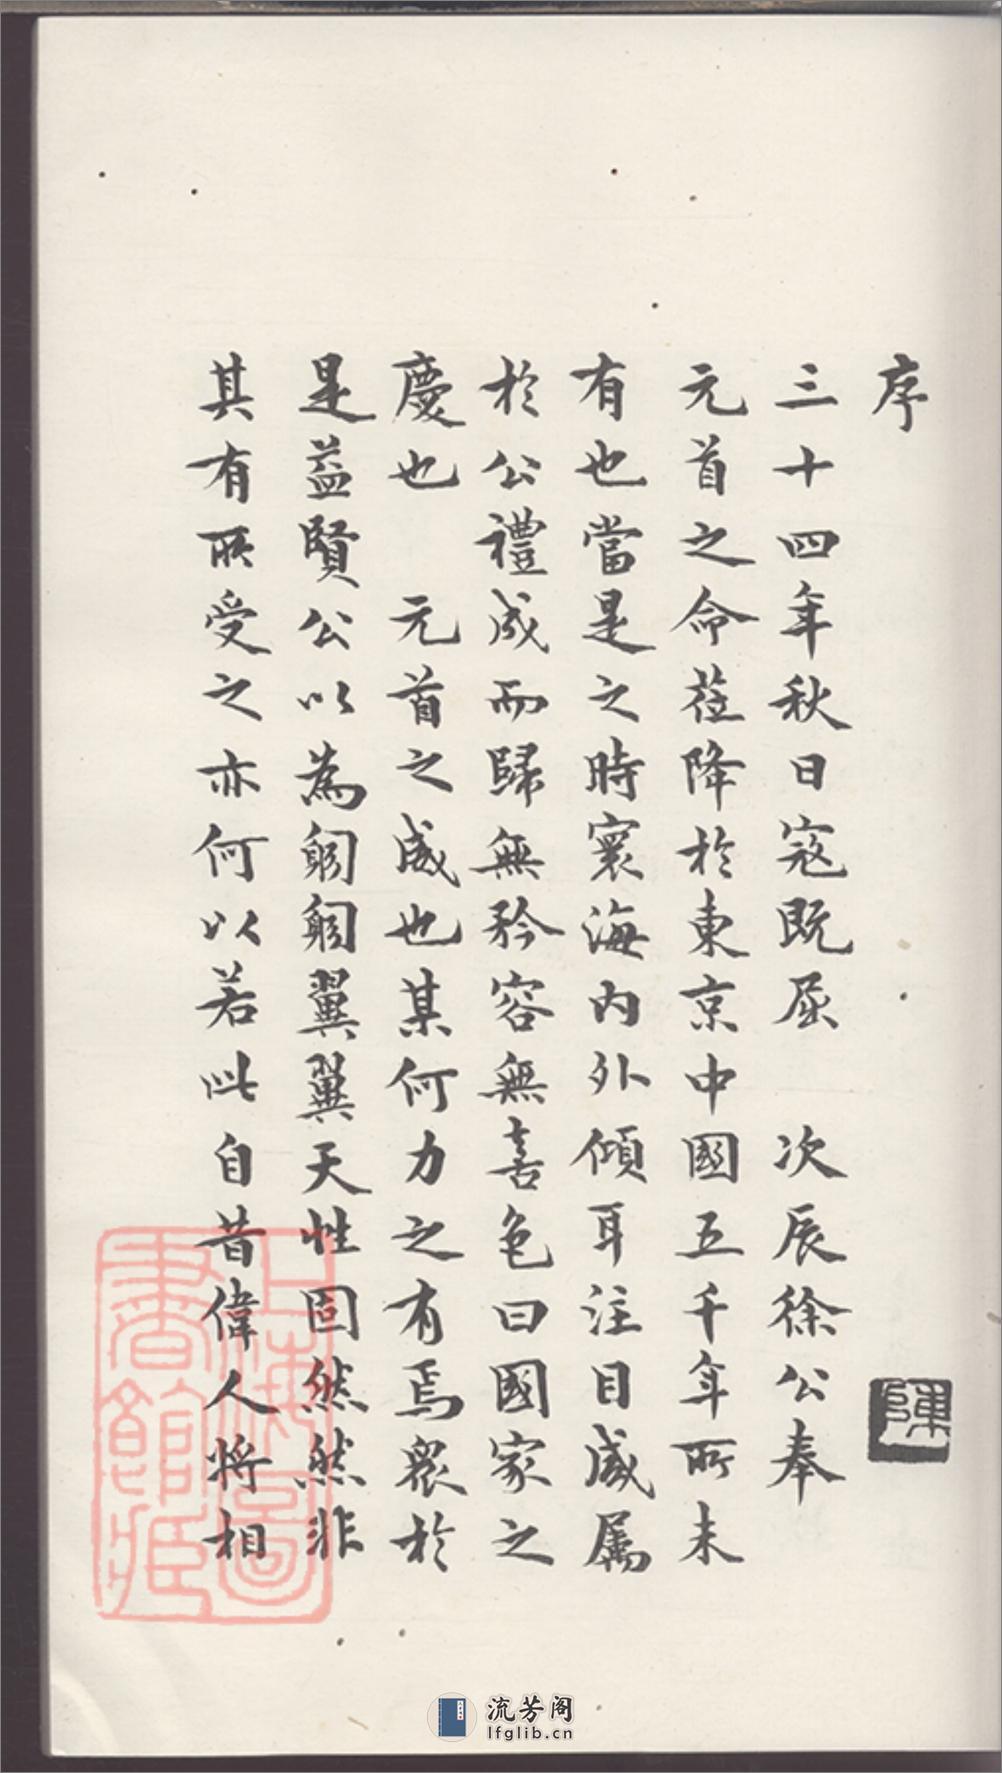 序
三十四年秋日寇既屈　次辰徐公奉
元首之命莅降於東京中國五千年所未
有也當是之時寰海內外傾耳注目咸属
於公禮成而歸無矜容無喜色曰國家之
慶也　元首之威也某何力之有焉眾於
是益賢公以為躬躬翼翼天性固然然非
其有所受之亦何以若此自昔偉人將相
陳
上海圖
書館藏
流芳阁
lfglib.cn